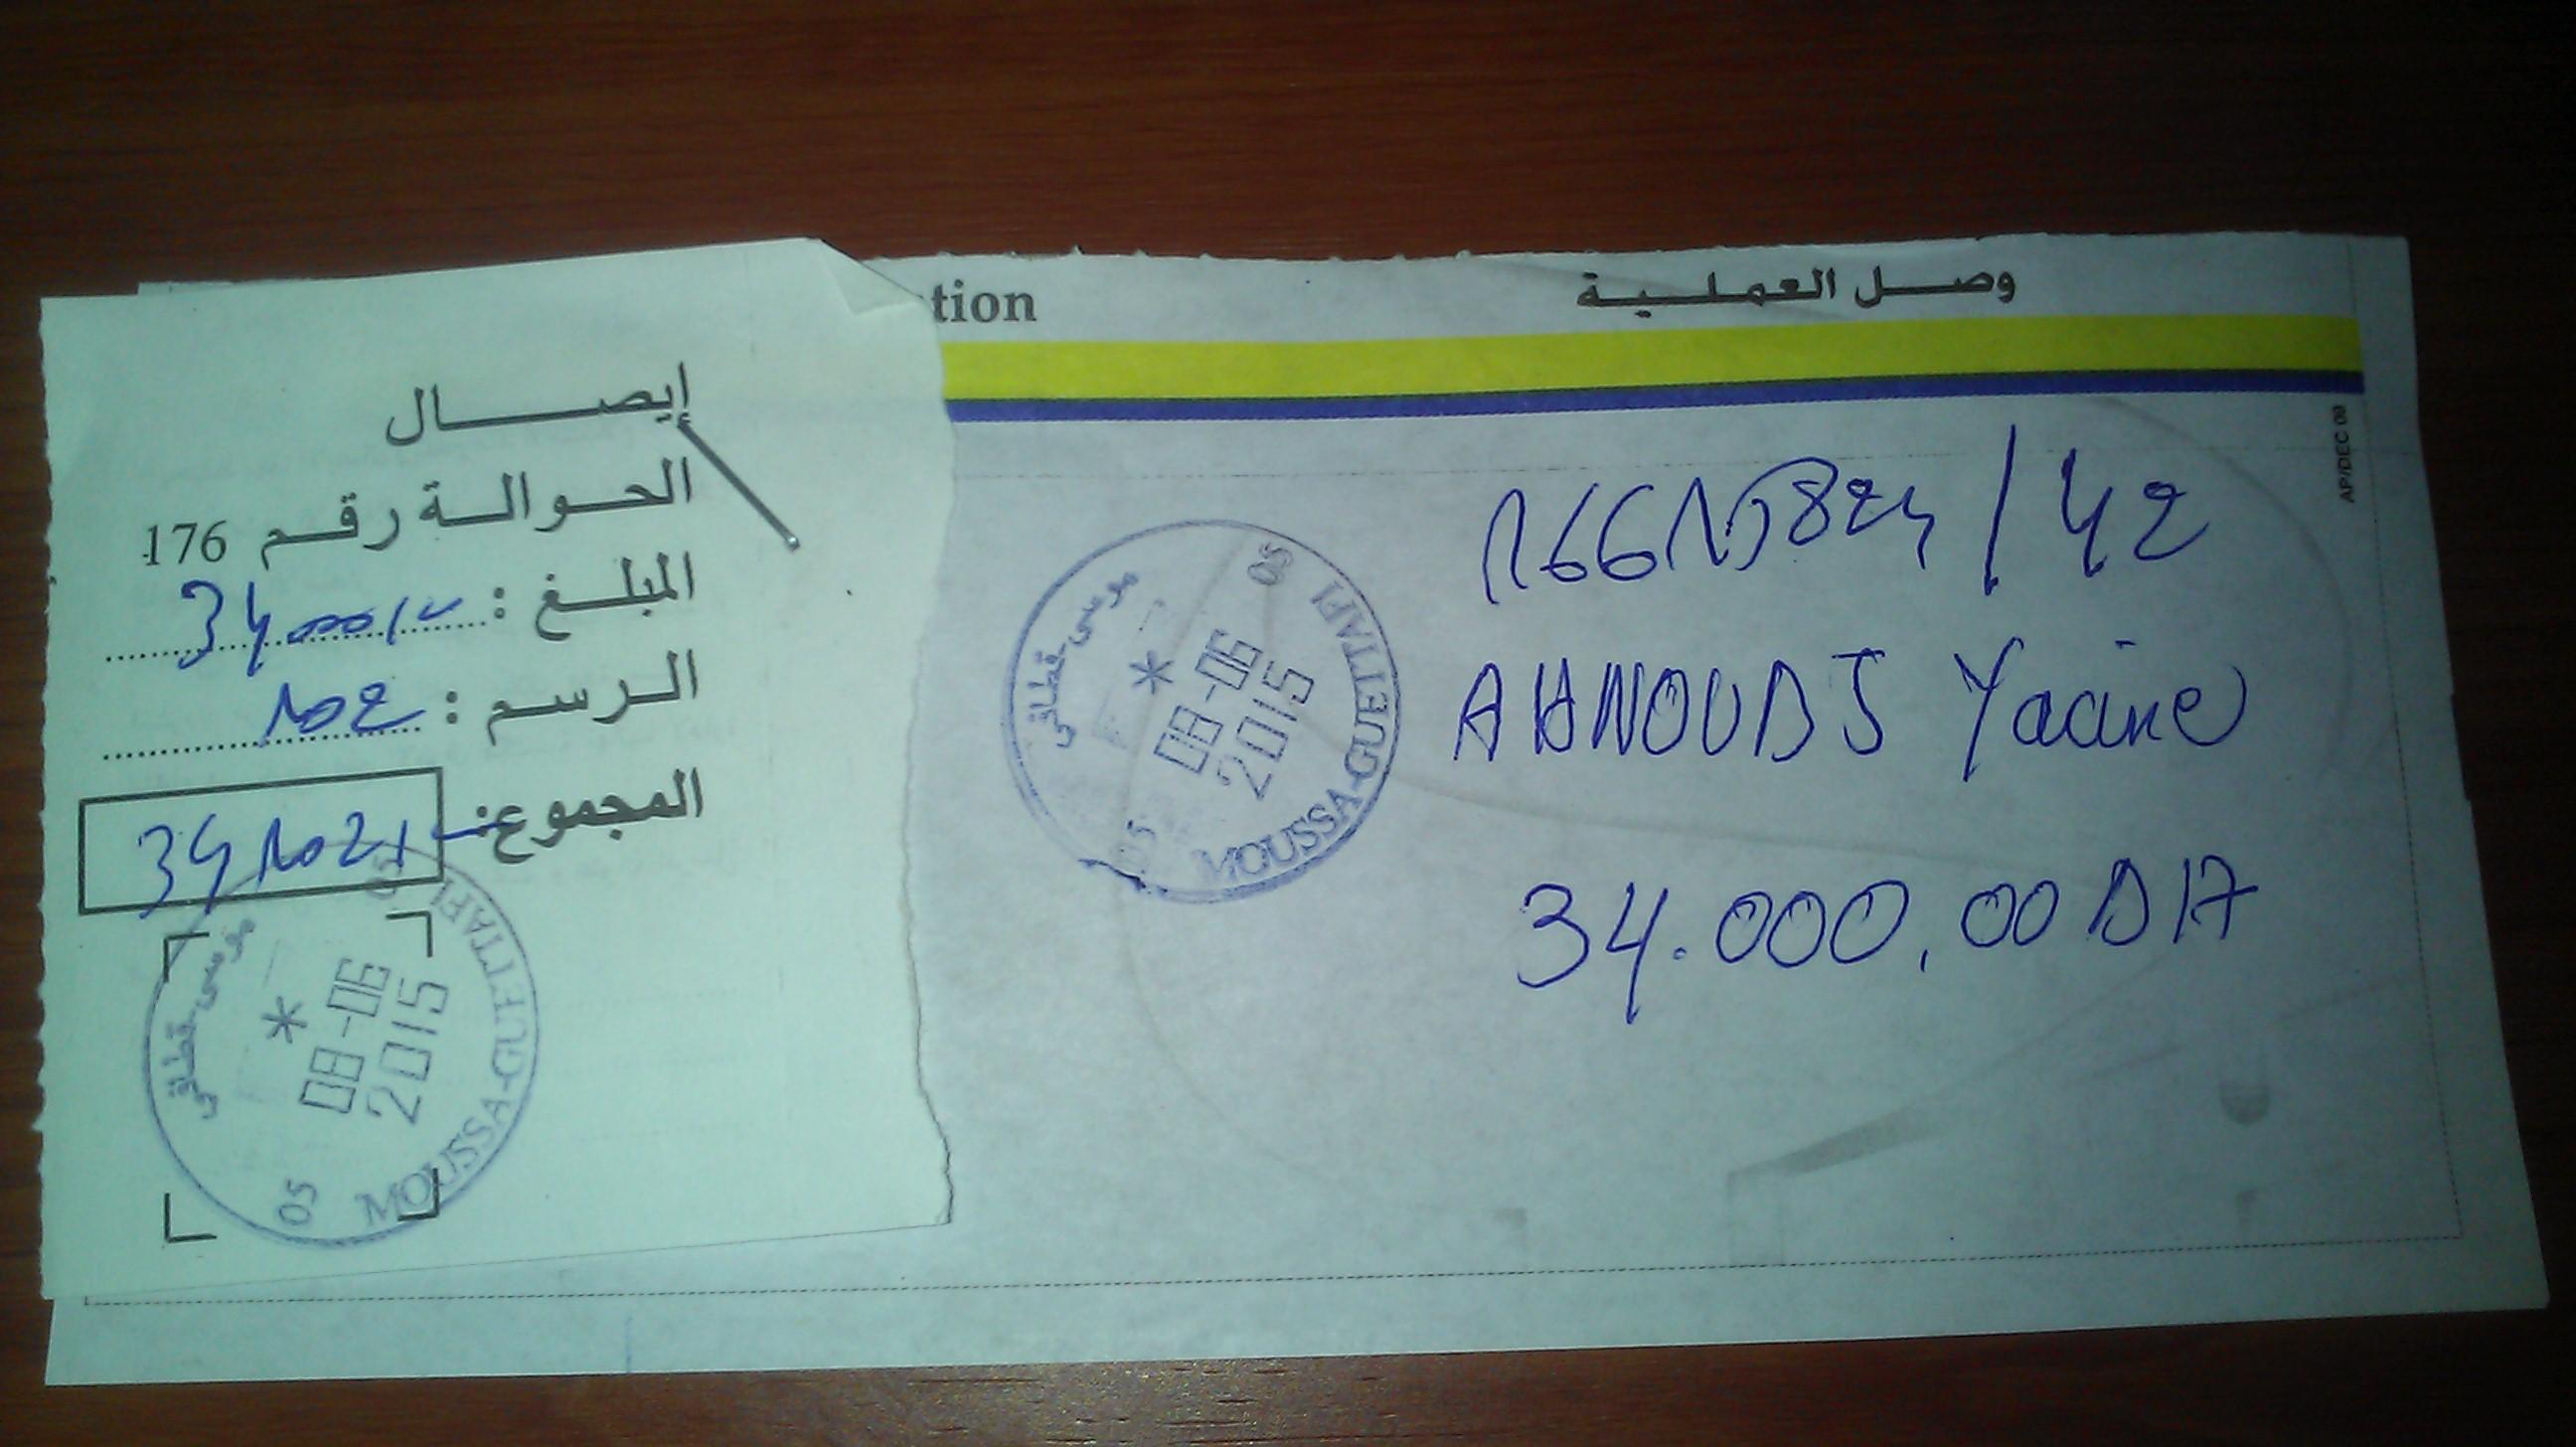 tion
وصل العملية
AP/DEC 09
إيصال
الحوالة رقم 176
المبلغ : 34000,00
الرسم : 102
المجموع: 34102,
موسى قطافي
05
08-06
2015
MOUSSA-GUETTAFI
05
16615824 / 42
AHNOUDJ Yacine
34.000,00 DA
موسى قطافي
05
08-06
2015
MOUSSA-GUETTAFI
05